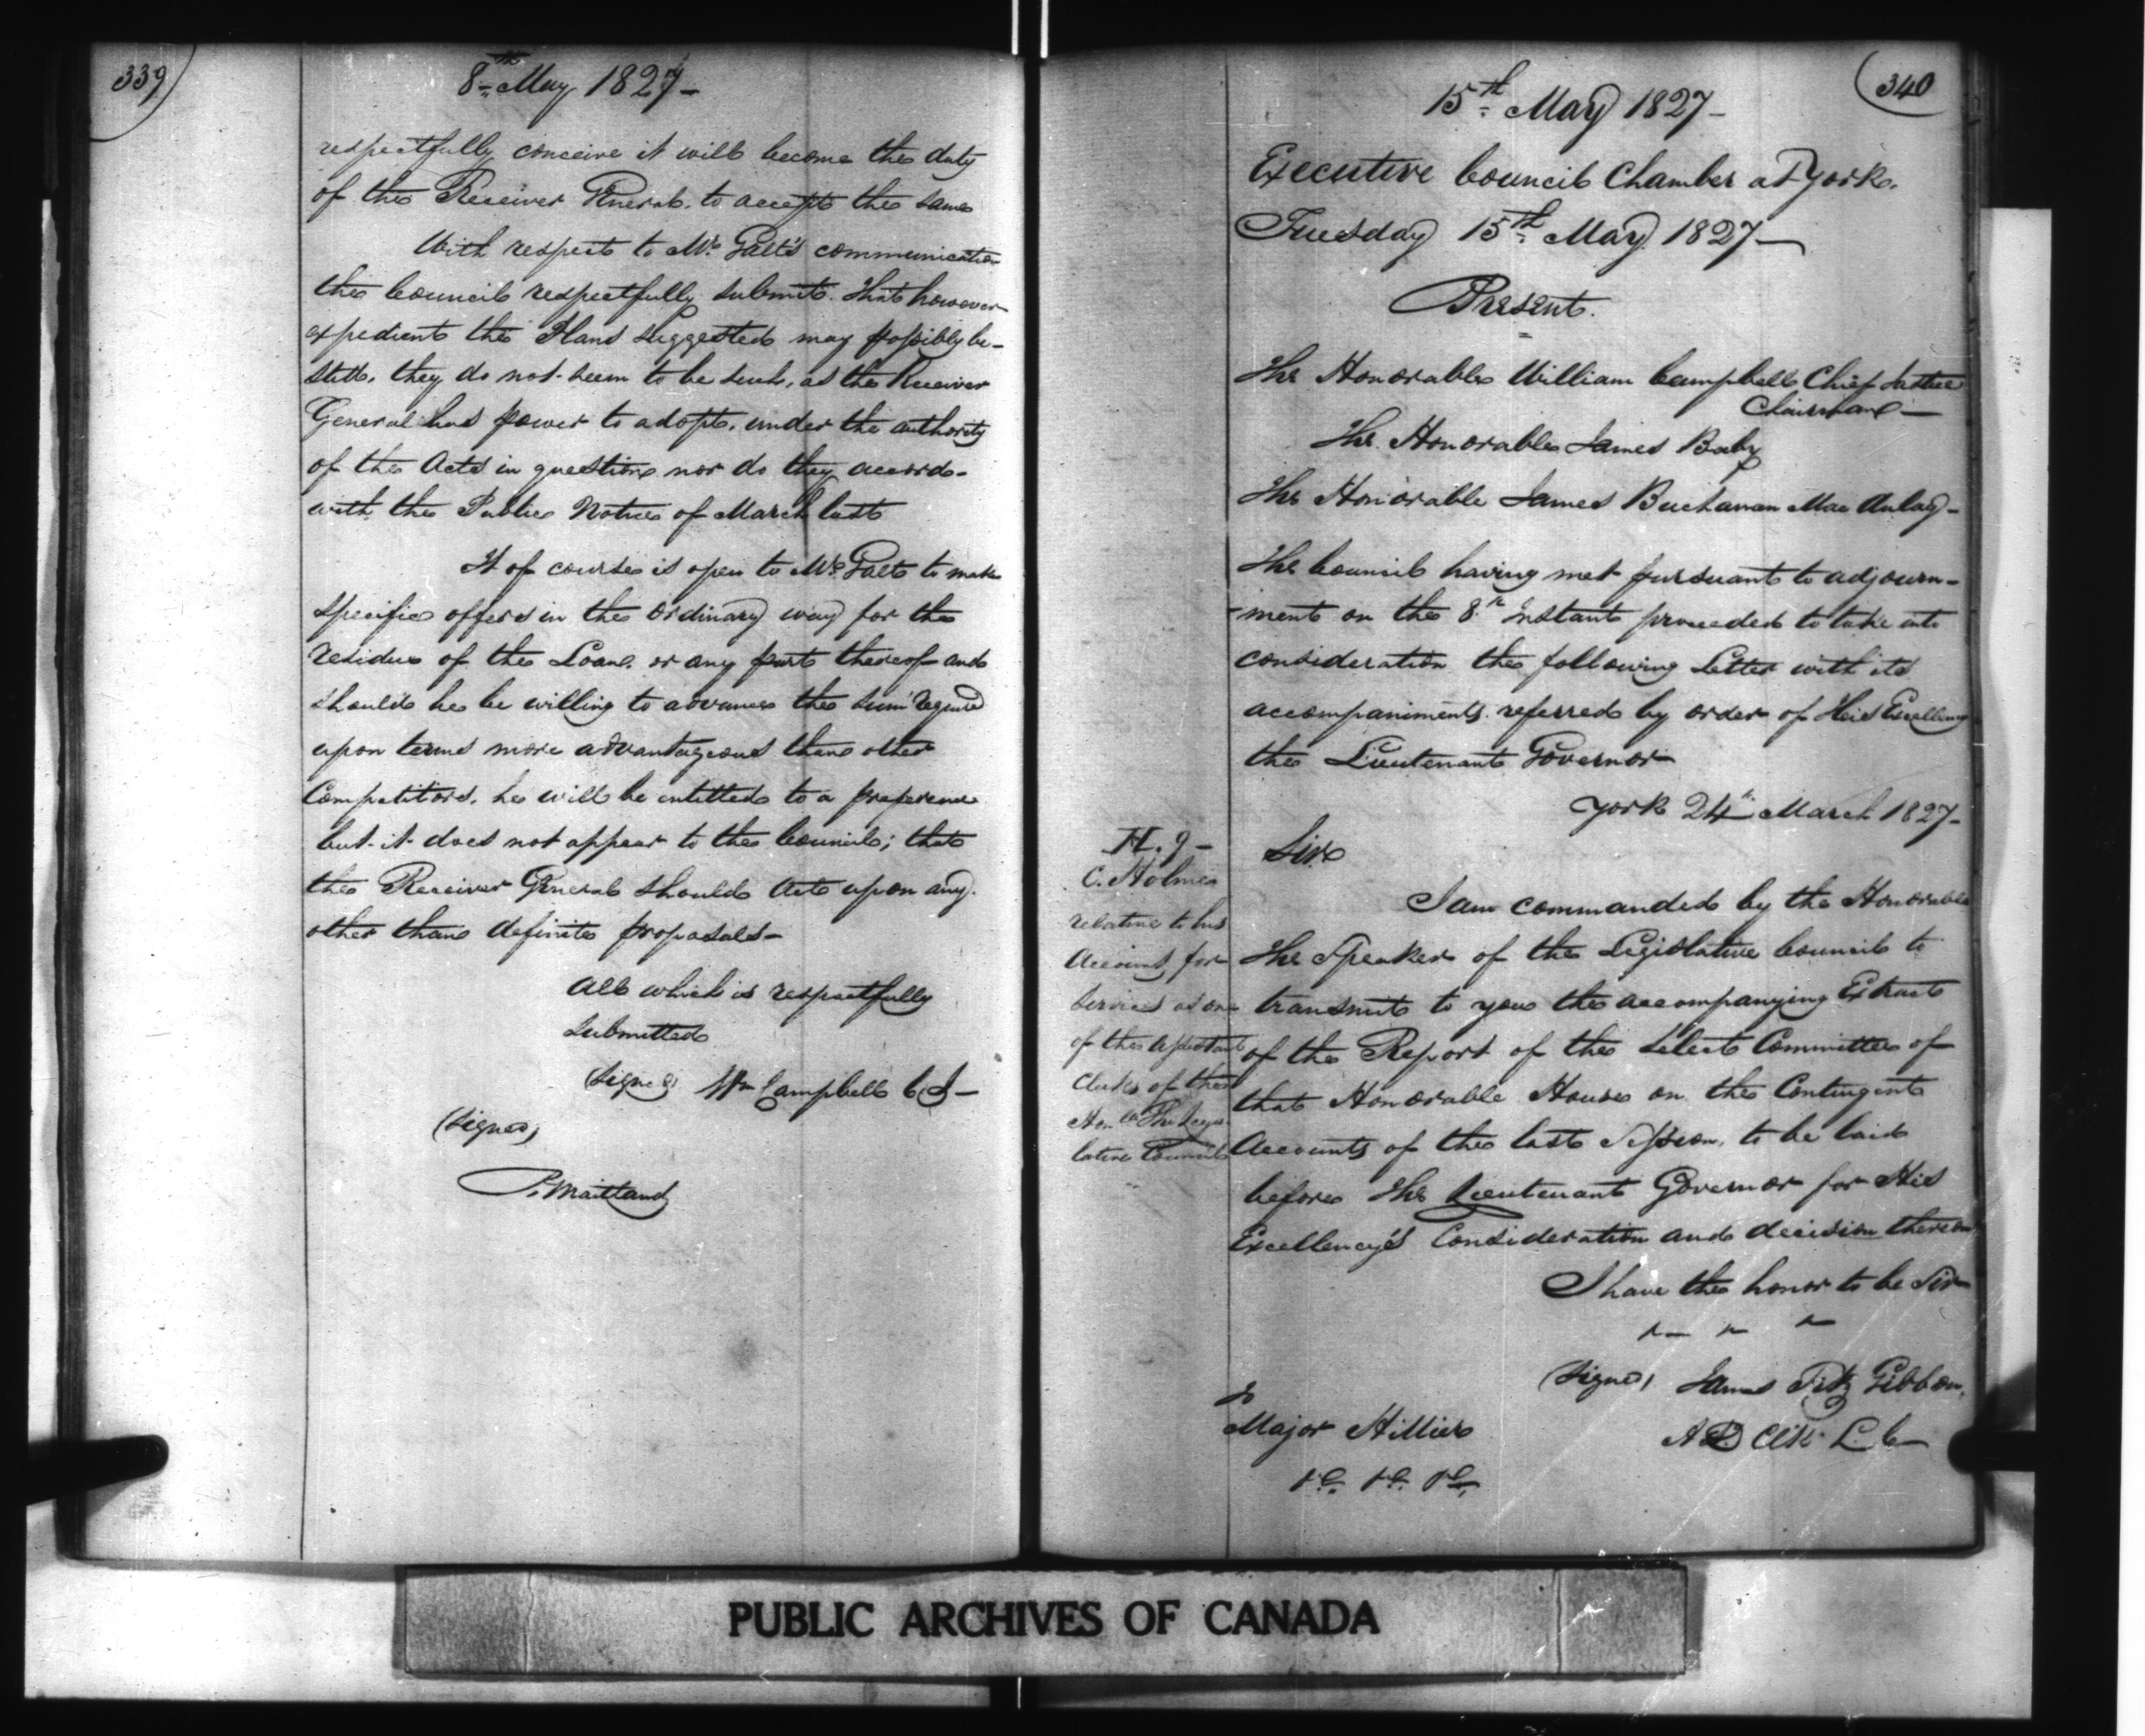 339
8th May 1827-
respectfully conceive it will become the duty
of the Receiver General, to accept the same
With respect to Mr. Galt's communication
the Council respectfully submit. That however
expedient the Plans suggested may possibly be-
still, they do not seem to be such, as the Receiver
General has power to adopt, under the authority
of the Acts in question nor do they accord-
with the Public Notice of March last
It of course is open to Mr. Galt to make
specific offers in the ordinary way for the
residue of the Loan, or any part thereof and
should he be willing to advance the sum required
upon terms more advantageous than other
Competitors, he will be entitled to a preference
but it does not appear to the Council; that
the Receiver General should Act upon any
other than definite proposals-
All which is respectfully
submitted
(Signed) Wm Campbell C J-
(Signed)
P. Maitland
340
15th May 1827-
Executive Council Chamber at York.
Tuesday 15th May 1827-
Present.
The Honorable William Campbell Chief Justice
Chairman-
The Honorable James Baby
The Honorable James Buchanan Mac Aulay-
The Council having met pursuant to adjourn-
ment on the 8th Instant proceeded to take into
consideration the following Letter with its
accompaniments referred by order of His Excellency
the Lieutenant Governor
York 24th March 1827-
H. 9-
C. Holmes
relative to his
Account for
Services as one
of the Assistant
Clerks of the
Honble The Legis
lative Council
Sir
I am commanded by the Honorable
The Speaker of the Legislative Council to
transmit to you the accompanying Extract
of the Report of the Select Committee of
that Honorable House on the Contingent
Accounts of the last Session, to be laid
before The Lieutenant Governor for His
Excellency's Consideration and decision thereon
I have the honor to be Sir
(Signed) James Fitz Gibbon,
Clk L C
To
Major Hillier
&c. &c. &c.
PUBLIC ARCHIVES OF CANADA